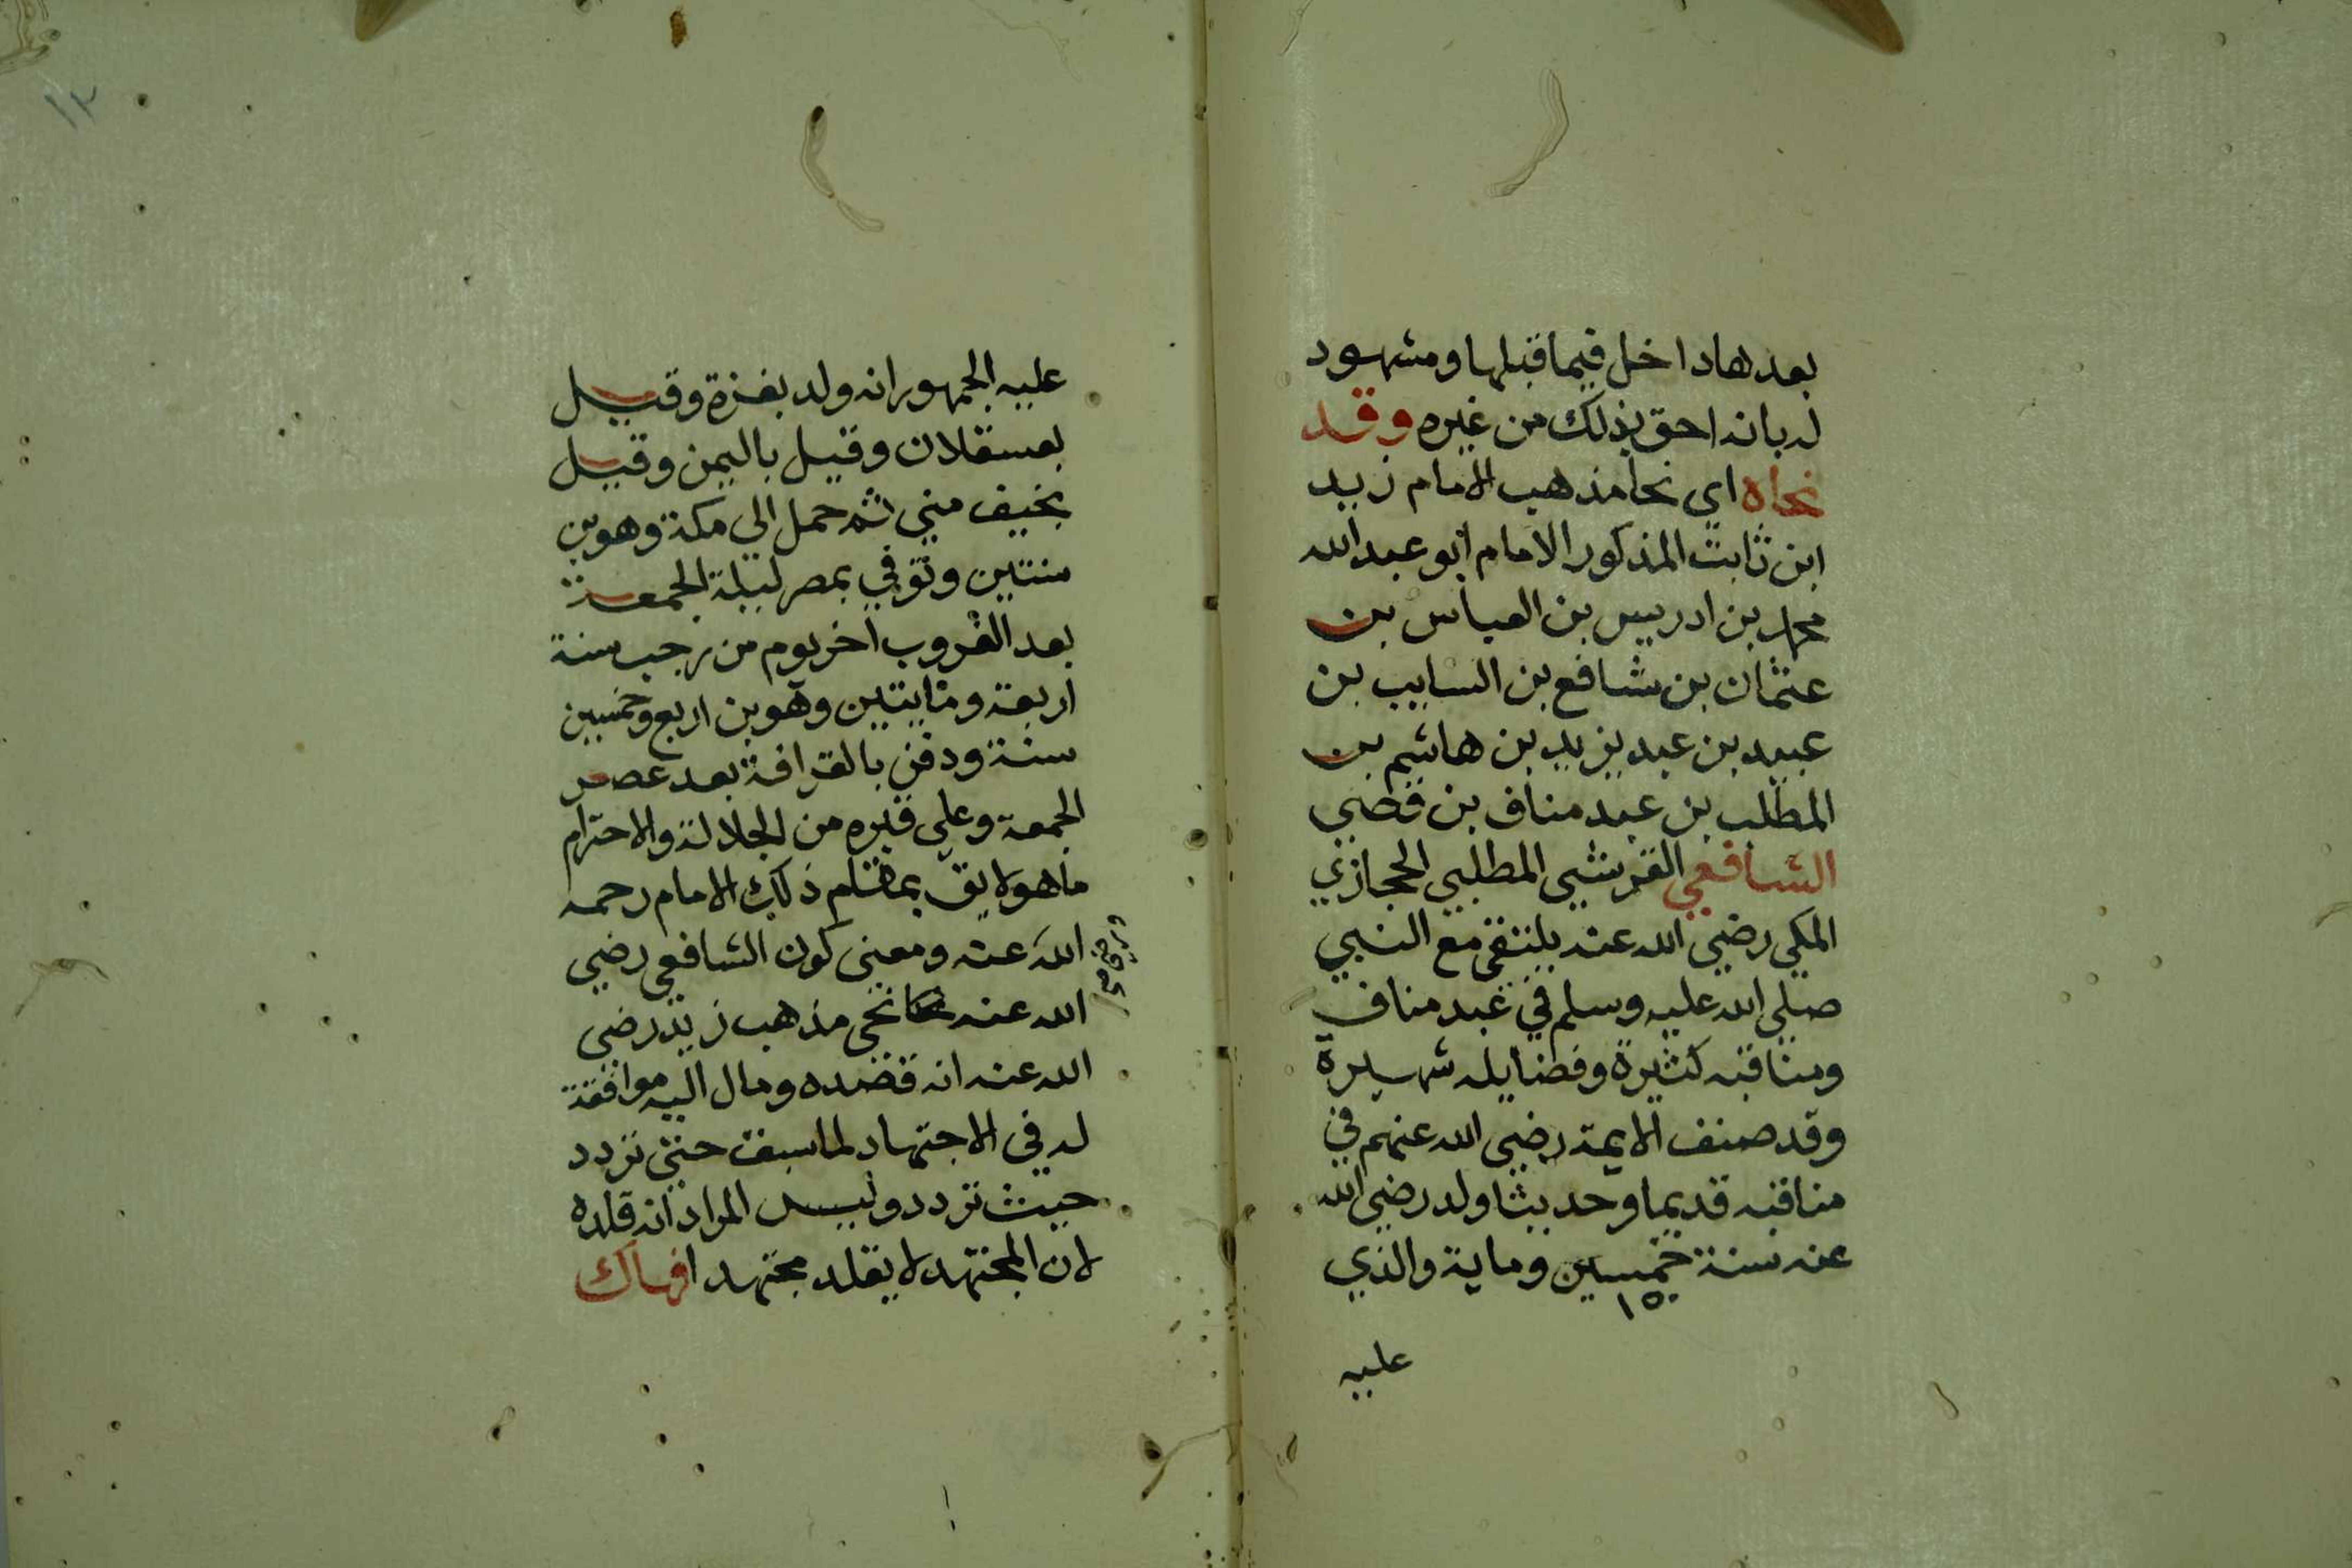 بعدها داخل فيما قبلها ومشهود
له بانه احق بذلك من غيره وقد
نحاه اي نحا مذهب الامام زيد
ابن ثابت المذكور الامام ابو عبد الله
محمد بن ادريس بن العباس بن
عثمان بن شافع بن السايب بن
عبيد بن عبد يزيد بن هاشم بن
المطلب بن عبد مناف بن قصي
الشافعي القرشي المطلبي الحجازي
المكي رضي الله عنه يلتقي مع النبي
صلي الله عليه وسلم في عبد مناف
ومناقبه كثيرة وفضايله شهيرة
وقد صنف الايمة رضي الله عنهم في
مناقبه قديما وحديثا ولد رضي الله
عنه سنة خمسين وماية والذي
١٥٠
عليه
١٣
عليه الجمهور انه ولد بغزة وقيل
بعسقلان وقيل باليمن وقيل
بخيف مني ثم حمل الي مكة وهو بن
سنتين وتوفي بمصر ليلة الجمعة
بعد الغروب اخر يوم من رجب سنة
اربعة ومايتين وهو بن اربع وخمسين
سنة ودفن بالقرافة بعد عصر
الجمعة وعلي قبره من الجلالة والاحترام
ما هو لايق بمقام ذلك الامام رحمه
الله عنه ومعني كون الشافعي رضي
الله عنه نحي مذهب زيد رضي
الله عنه انه قصده ومال اليه موافقة
له في الاجتهاد لما سبق حتي تردد
حيث تردد وليس المراد انه قلده
لان المجتهد لا يقلد مجتهدا فهاك